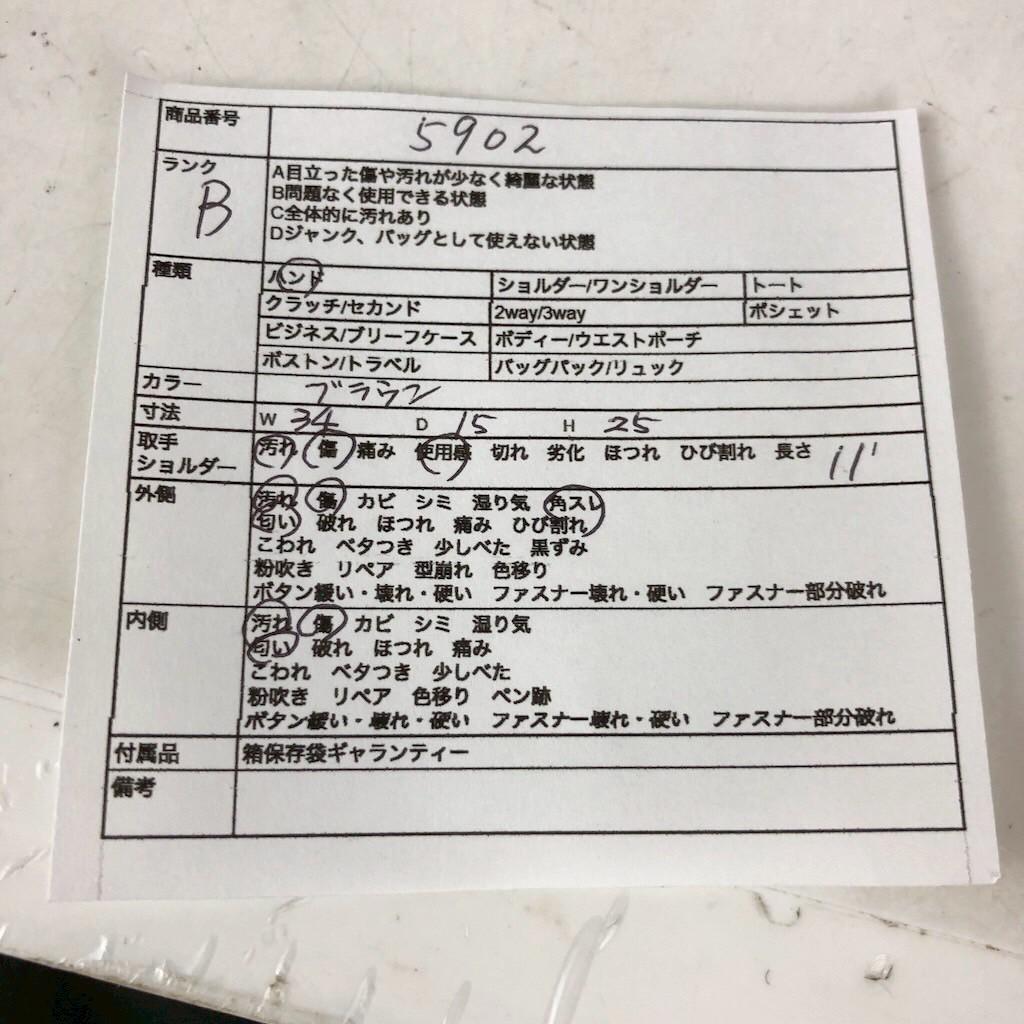 商品番号 5902
ランク B
A目立った傷や汚れが少なく綺麗な状態
B問題なく使用できる状態
C全体的に汚れあり
Dジャンク、バッグとして使えない状態
種類 ハンド ショルダー/ワンショルダー トート
クラッチ/セカンド 2way/3way ポシェット
ビジネス/ブリーフケース ボディー/ウエストポーチ
ボストン/トラベル バッグパック/リュック
カラー ブラウン
寸法 W 34 D 15 H 25
取手 汚れ 傷 痛み 使用感 切れ 劣化 ほつれ ひび割れ 長さ 11
ショルダー
外側 汚れ 傷 カビ シミ 湿り気 角スレ
匂い 破れ ほつれ 痛み ひび割れ
こわれ ベタつき 少しべた 黒ずみ
粉吹き リペア 型崩れ 色移り
ボタン緩い・壊れ・硬い ファスナー壊れ・硬い ファスナー部分破れ
内側 汚れ 傷 カビ シミ 湿り気
匂い 破れ ほつれ 痛み
こわれ ベタつき 少しべた
粉吹き リペア 色移り ペン跡
ボタン緩い・壊れ・硬い ファスナー壊れ・硬い ファスナー部分破れ
付属品 箱保存袋ギャランティー
備考